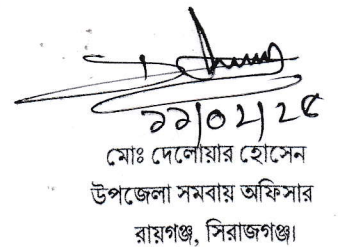 মোঃ দেলোয়ার হোসেন
উপজেলা সমবায় অফিসার
রায়গঞ্জ, সিরাজগঞ্জ।